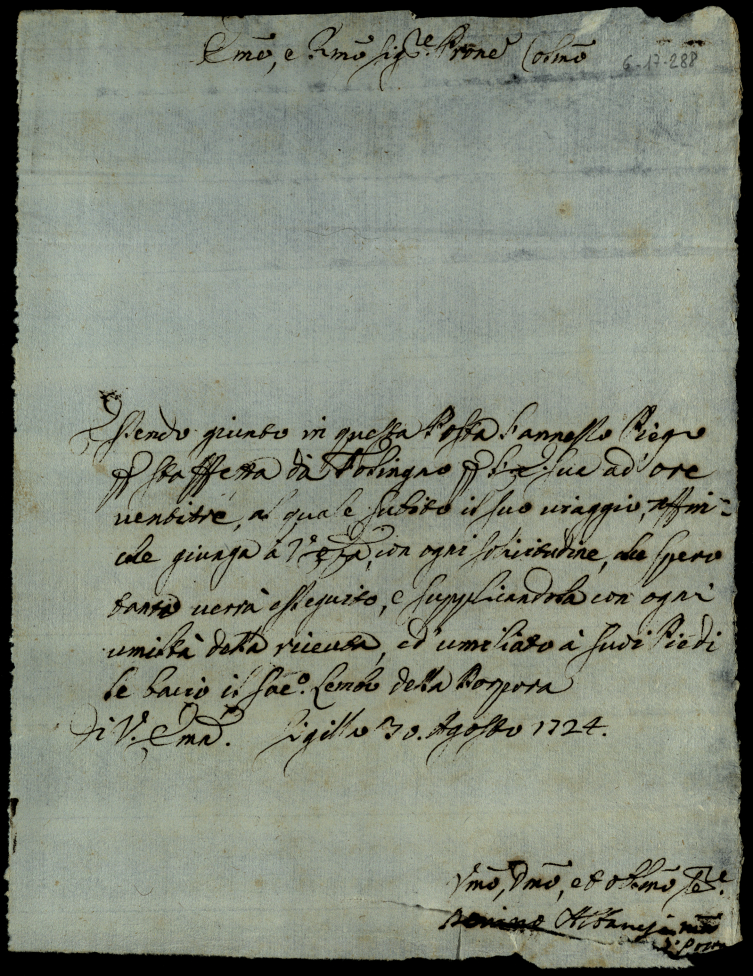 Emõ, e Rmõ Sig.re Prone Colmõ
6-17-288
Essendo giunto in questa Posta l'annesso Piego
p staffetta da Foligno p sue ad' ore
ventitre, al quale subito il suo viaggio, affin=
che giunga à V. Eza, con ogni solicitudine, che spero
tanto uerrà esseguito, e supplicandola con ogni
umiltà della riceuta, ed' umiliato à suoi Piedi
le bacio il Sac.o Lembo della Porpora
Di V. Emã. Sigillo 30. Agosto 1724.
Vmõ, Dmõ, et obbmõ Se.re
Albanesi